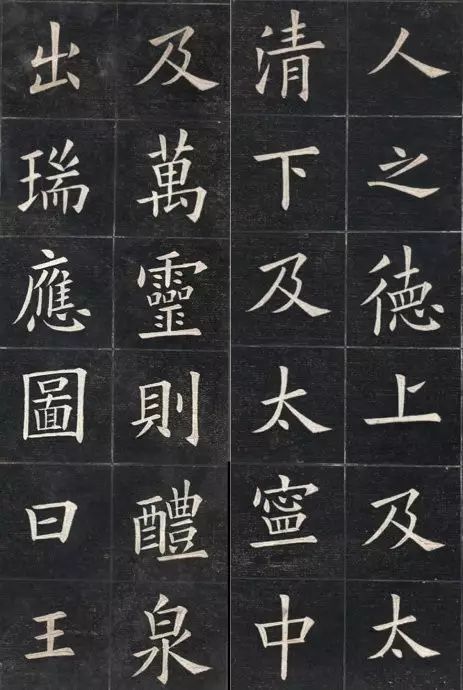 人之德上及太
清下及太寍中
及萬靈則醴泉
出瑞應圖曰王